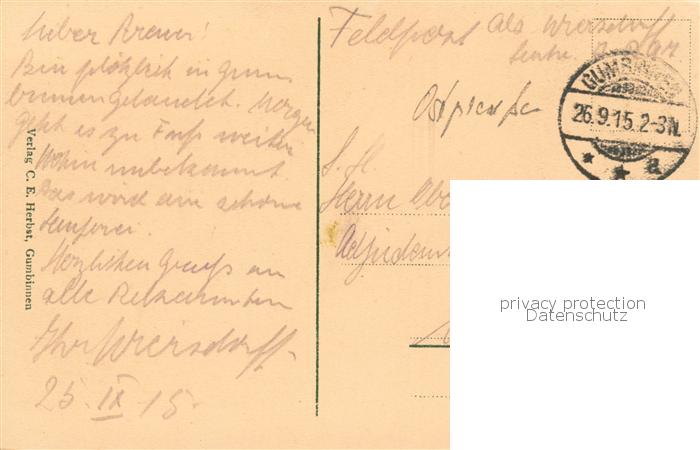 Lieber Brauer!
Bin plötzlich in Gum
binnen gelandet. Morgen
geht es zu Fuß weiter
Wohin unbekannt.
Das wird eine schöne
Herzlichen Gruß an
alle Bekannten
Ihr Wiersdorff.
25. IX 15.
Verlag C. E. Herbst, Gumbinnen
Feldpost Abs. Wiersdorff
Ostpreußen
GUMBINNEN
26.9.15.2-3N.
* * a
S. H.
Herrn
privacy protection
Datenschutz